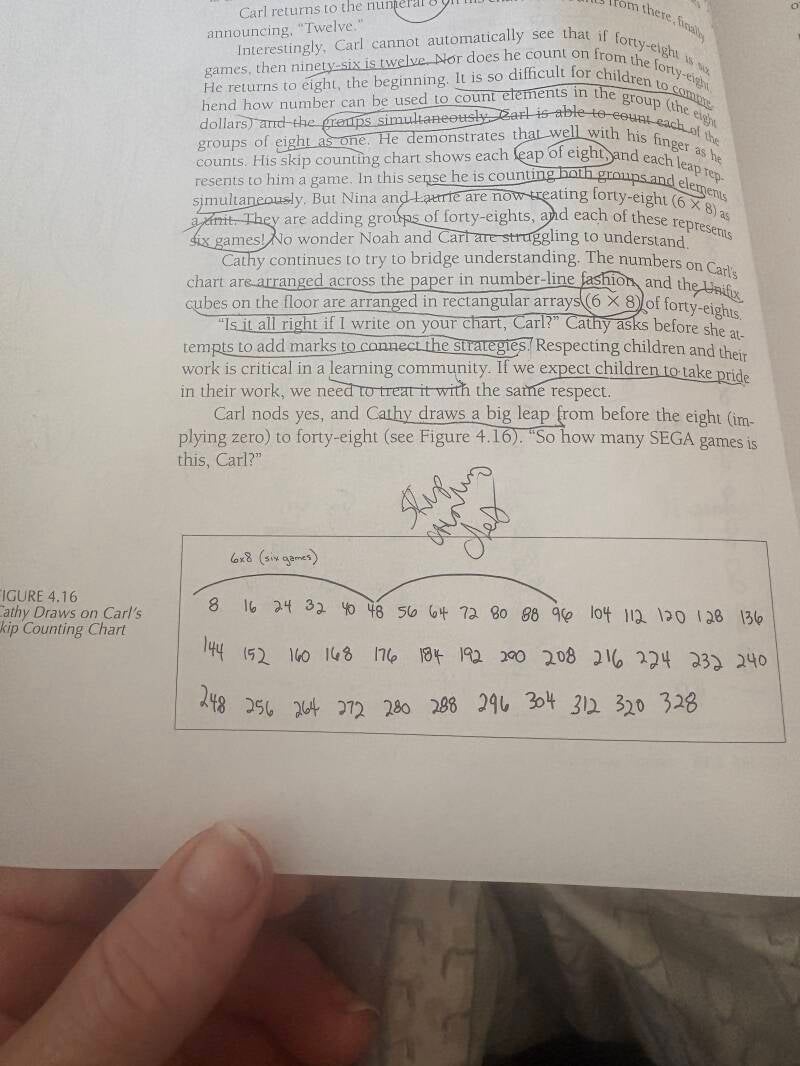 Carl returns to the numeral 8 on
from there, finally
announcing, “Twelve.”
Interestingly, Carl cannot automatically see that if forty-eight is six
games, then ninety-six is twelve. Nor does he count on from the forty-eight.
He returns to eight, the beginning. It is so difficult for children to compre-
hend how number can be used to count elements in the group (the eight
dollars) and the groups simultaneously. Carl is able to count each of the
groups of eight as one. He demonstrates that well with his finger as he
counts. His skip counting chart shows each leap of eight, and each leap rep-
resents to him a game. In this sense he is counting both groups and elements
simultaneously. But Nina and Laurie are now treating forty-eight (6 × 8) as
a unit. They are adding groups of forty-eights, and each of these represents
six games! No wonder Noah and Carl are struggling to understand.
Cathy continues to try to bridge understanding. The numbers on Carl's
chart are arranged across the paper in number-line fashion, and the Unifix
cubes on the floor are arranged in rectangular arrays (6 × 8) of forty-eights.
“Is it all right if I write on your chart, Carl?” Cathy asks before she at-
tempts to add marks to connect the strategies. Respecting children and their
work is critical in a learning community. If we expect children to take pride
in their work, we need to treat it with the same respect.
Carl nods yes, and Cathy draws a big leap from before the eight (im-
plying zero) to forty-eight (see Figure 4.16). “So how many SEGA games is
this, Carl?”
Skip
counting
chart
6x8 (six games)
FIGURE 4.16
Cathy Draws on Carl's
Skip Counting Chart
8 16 24 32 40 48 56 64 72 80 88 96 104 112 120 128 136
144 152 160 168 176 184 192 200 208 216 224 232 240
248 256 264 272 280 288 296 304 312 320 328